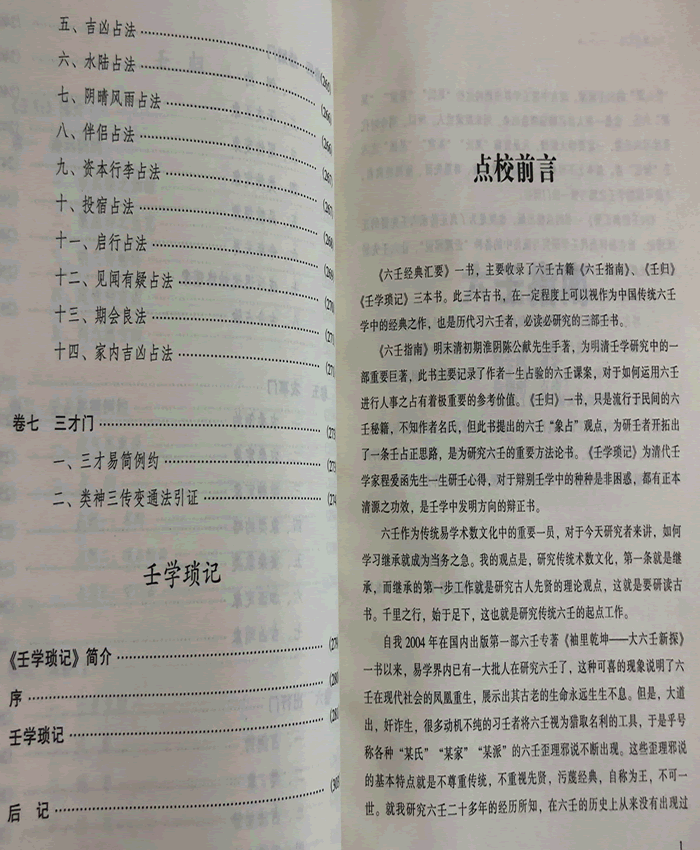 五、吉凶占法
六、水陆占法 (266)
七、阴晴风雨占法 (266)
八、伴侣占法 (266)
九、资本行李占法 (267)
十、投宿占法 (267)
十一、启行占法 (268)
十二、见闻有疑占法 (269)
十三、期会良法 (270)
十四、家内吉凶占法 (271)
卷七 三才门 (273)
一、三才易简例约 (273)
二、类神三传变通法引证 (274)
壬学琐记
《壬学琐记》简介 (279)
序
壬学琐记
后记
点校前言
《六壬经典汇要》一书，主要收录了六壬古籍《六壬指南》、《壬归》
《壬学琐记》三本书。此三本古书，在一定程度上可以视作为中国传统六壬
学中的经典之作，也是历代习六壬者，必读必研究的三部壬书。
《六壬指南》明末清初期淮阴陈公献先生手著，为明清壬学研究中的一
部重要巨著，此书主要记录了作者一生占验的六壬课案，对于如何运用六壬
进行人事之占有着极重要的参考价值。《壬归》一书，只是流行于民间的六
壬秘籍，不知作者名氏，但此书提出的六壬“象占”观点，为研壬者开拓出
了一条壬占正思路，是为研究六壬的重要方法论书。《壬学琐记》为清代壬
学家程爱函先生一生研壬心得，对于辩别壬学中的种种是非困惑，都有正本
清源之功效，是壬学中发明方向的辩正书。
六壬作为传统易学术数文化中的重要一员，对于今天研究者来讲，如何
学习继承就成为当务之急。我的观点是，研究传统术数文化，第一条就是继
承，而继承的第一步工作就是研究古人先贤的理论观点，这就是要研读古
书。千里之行，始于足下，这也就是研究传统六壬的起点工作。
自我2004年在国内出版第一部六壬专著《袖里乾坤——大六壬新探》
一书以来，易学界内已有一大批人在研究六壬了，这种可喜的现象说明了六
壬在现代社会的凤凰重生，展示出其古老的生命永远生生不息。但是，大道
出，奸诈生，很多动机不纯的习壬者将六壬视为猎取名利的工具，于是乎号
称各种“某氏”“某家”“某派”的六壬歪理邪说不断出现。这些歪理邪说
的基本特点就是不尊重传统，不重视先贤，污蔑经典，自称为王，不可一
世。就我研究六壬二十多年的经历所知，在六壬的历史上从来没有出现过
1